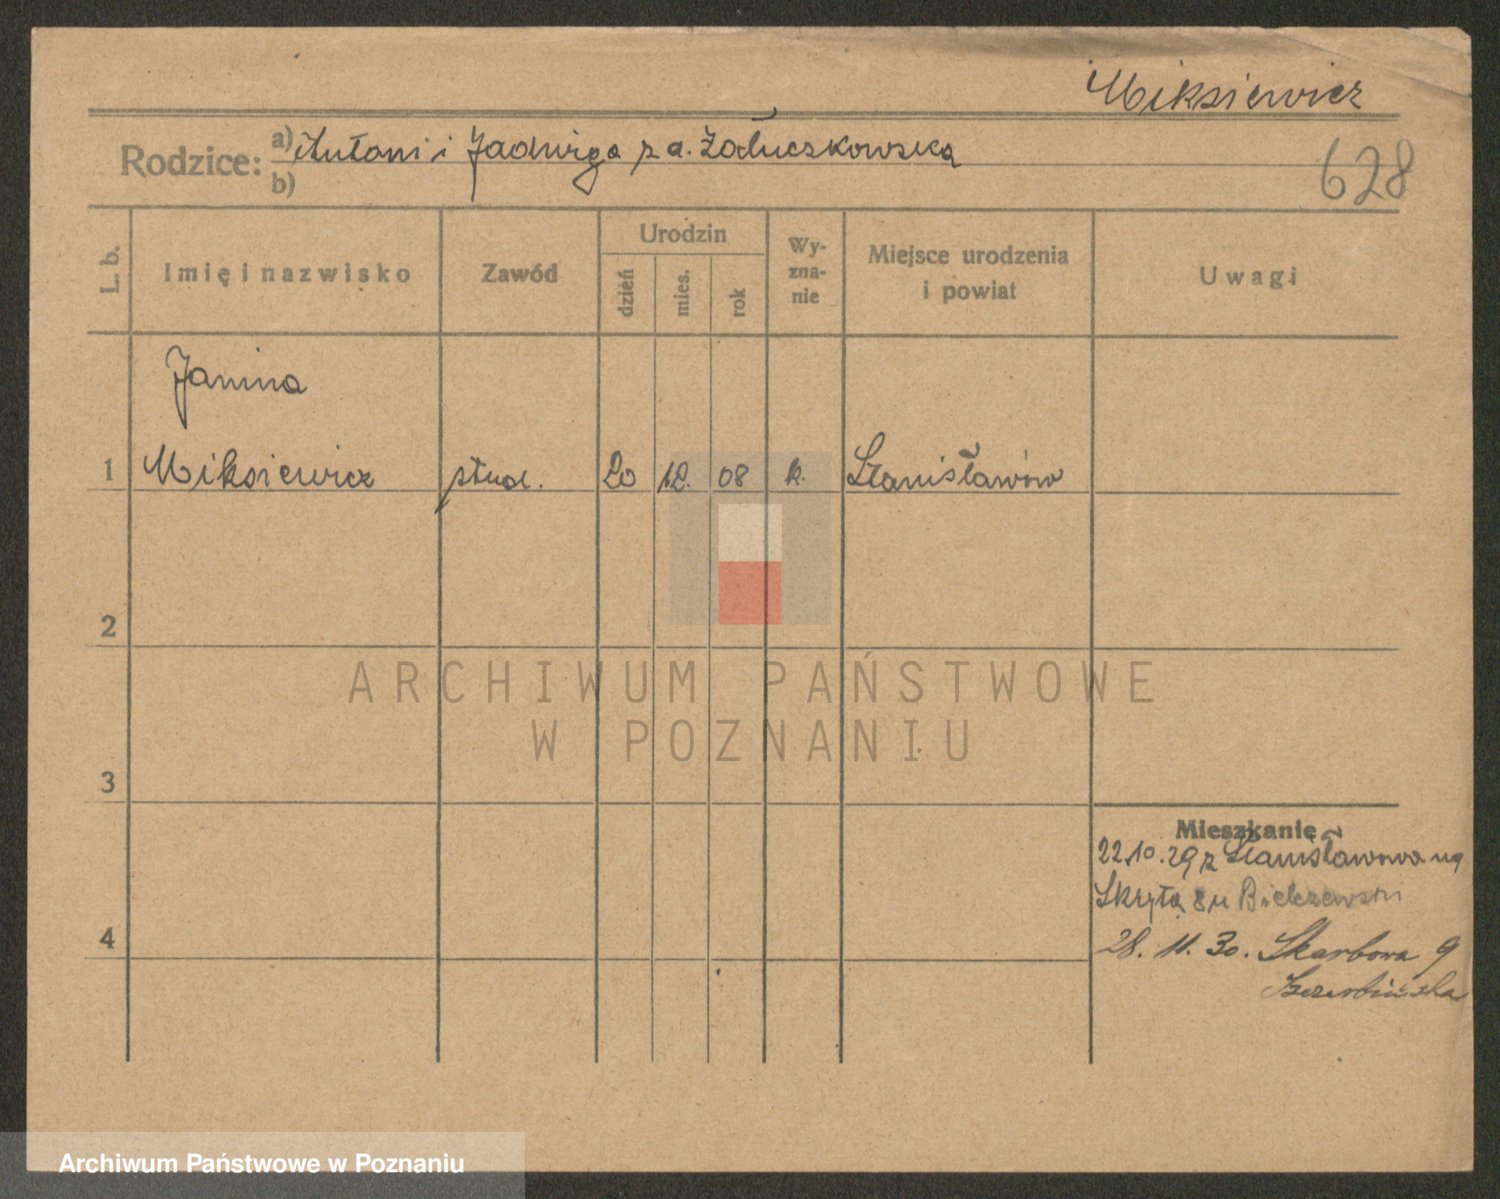 Miksiewicz
Rodzice: a) Antoni i Jadwiga z d. Załuczkowska
b)
628
L. b.
Imię i nazwisko
Zawód
Urodzin
dzień
mies.
rok
Wy-
zna-
nie
Miejsce urodzenia
i powiat
Uwagi
Janina
1 Miksiewicz stud. 20 12. 08 k. Stanisławów
2
ARCHIWUM PAŃSTWOWE
W POZNANIU
3
Mieszkanie
22.10.29 z Stanisławowa na
Skrytą 8 u
4
28. 11. 30. Skarbowa 9
Archiwum Państwowe w Poznaniu